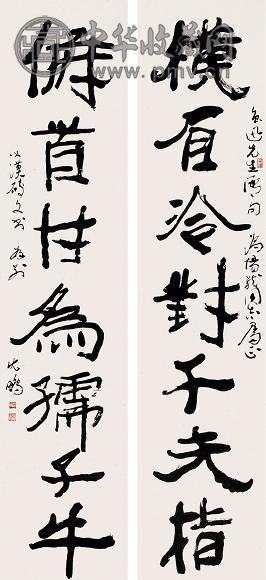 中华收藏网
www.pmv.cn
橫眉冷對千夫指
魯迅先生詩句
同志屬正
俯首甘為孺子牛
以漢碑文
沈鵬